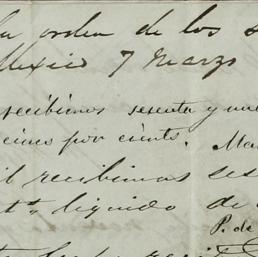 la orden de los s
Mexico 7 Marzo
recibimos sesenta y nue
cinco por ciento. Ma
il recibimos ses
to liquido de
P. de